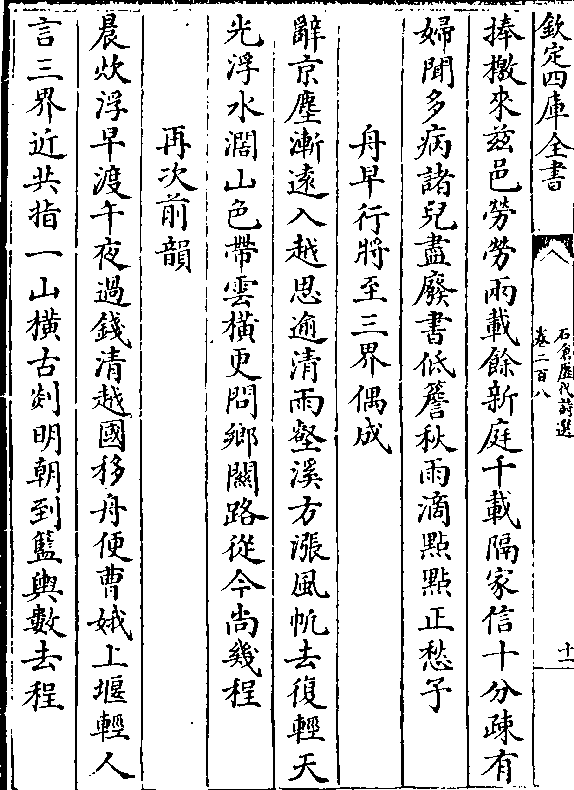 欽定四庫全書
石倉歷代詩選
卷二百八
十一
捧檄來兹邑勞勞兩載餘新庭千載隔家信十分疎有
婦聞多病諸兒盡廢書低簷秋雨滴點點正愁予
舟早行將至三界偶成
辭京塵漸逺入越思逾清雨壑溪方漲風帆去復輕天
光浮水濶山色帶雲橫更問鄉關路從今尚幾程
再次前韻
晨炊浮早渡午夜過錢清越國移舟便曹娥上堰輕人
言三界近共指一山橫古剡明朝到籃輿數去程